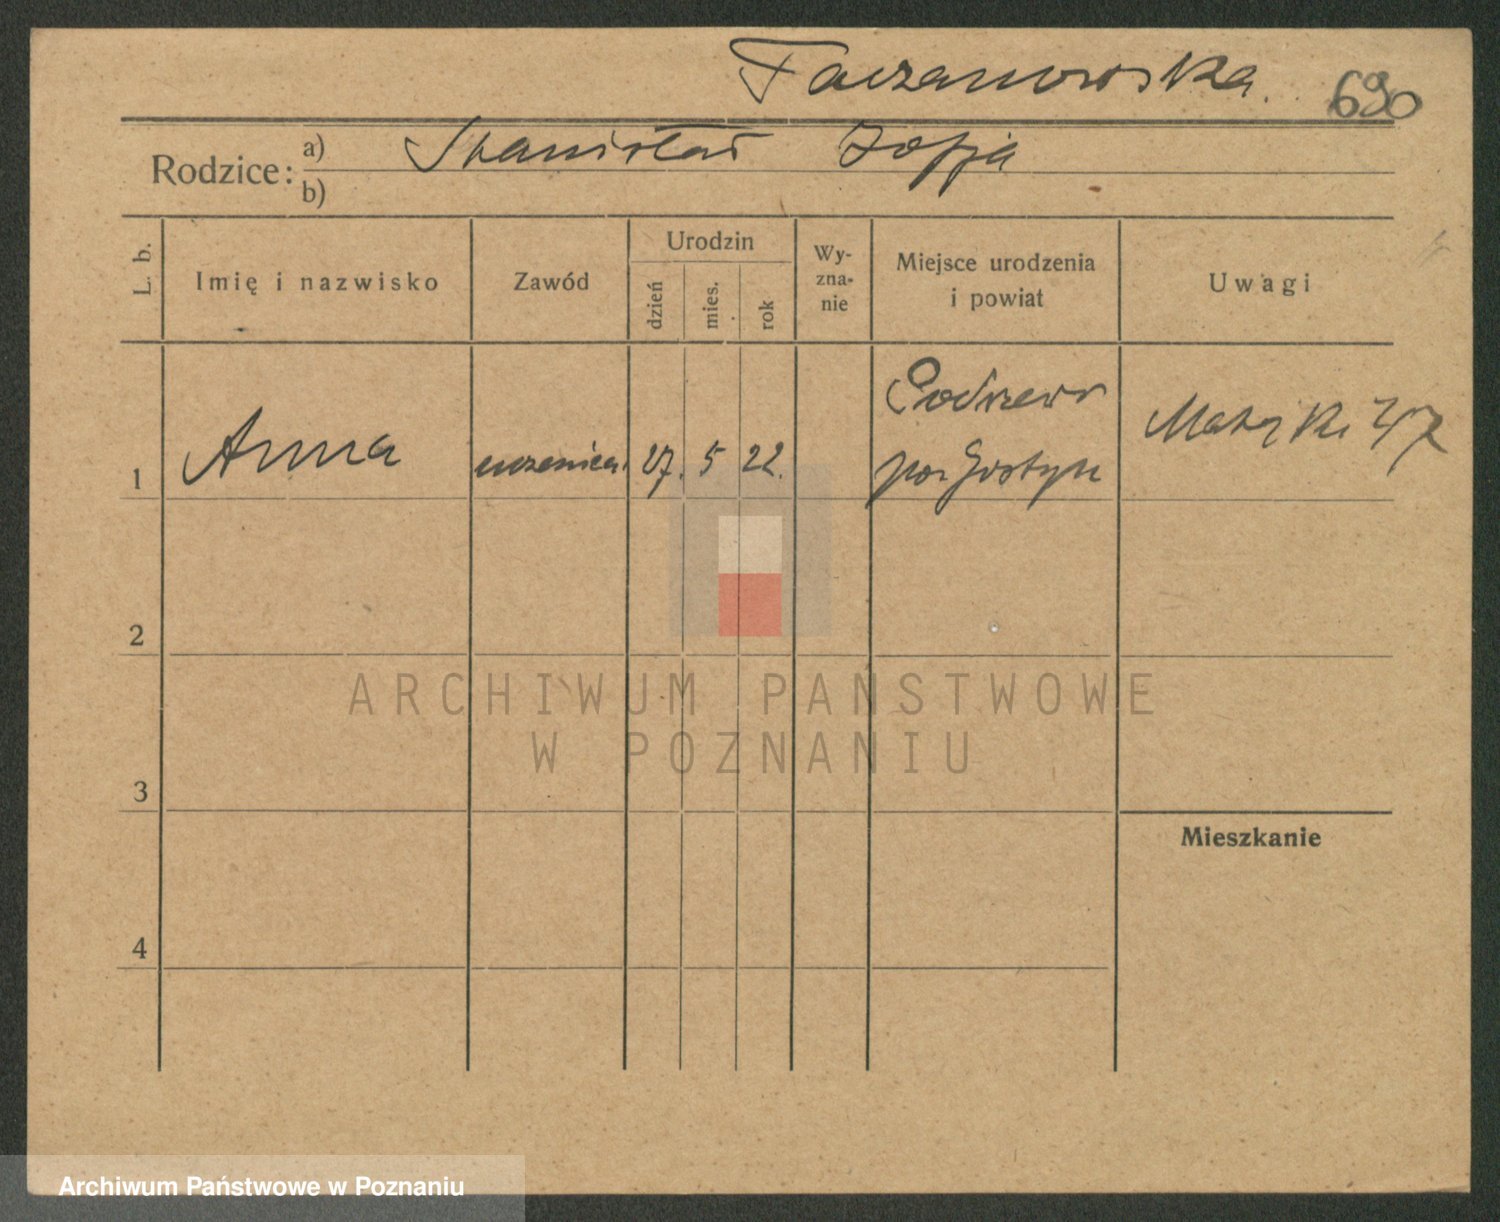 Taczanowska. 690
Rodzice: a) Stanisław Zofja
b)
L. b.
Imię i nazwisko
Zawód
Urodzin
dzień
mies.
rok
Wy-
zna-
nie
Miejsce urodzenia
i powiat
Uwagi
1 Anna uczenica 27. 5 22.
pow Gostyn
2
3
4
Mieszkanie
ARCHIWUM PAŃSTWOWE
W POZNANIU
Archiwum Państwowe w Poznaniu